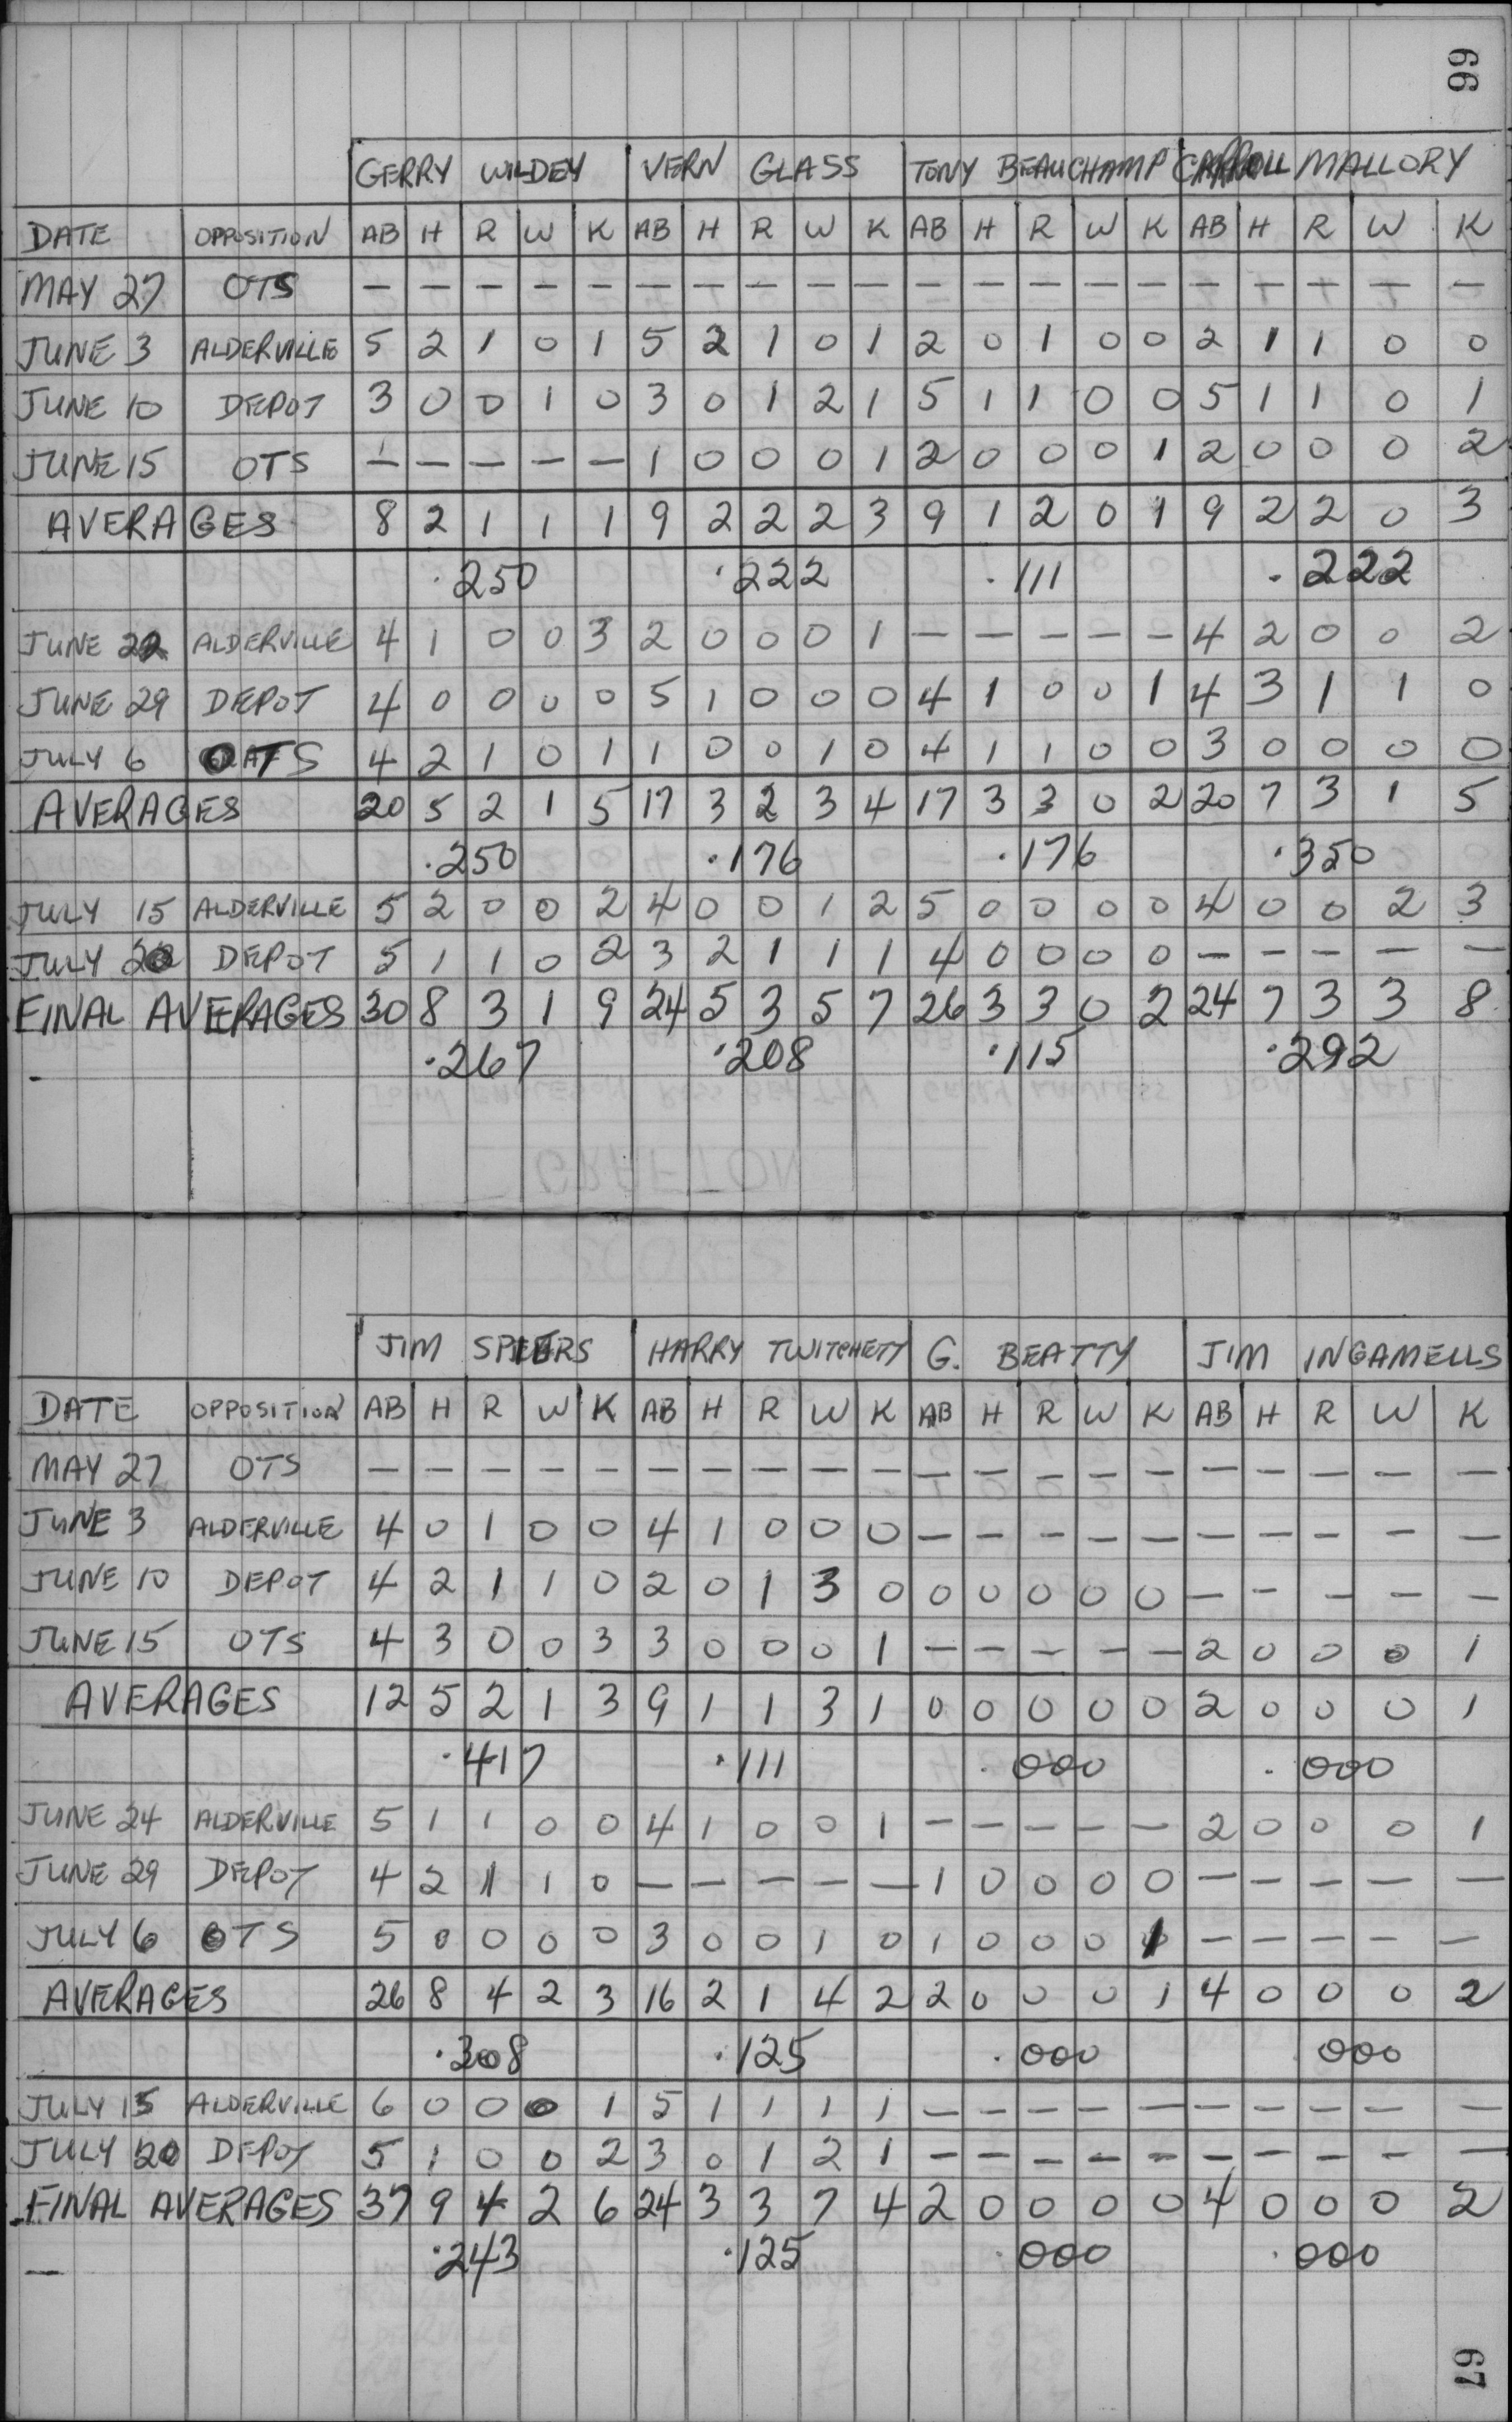 66
GERRY WILDEY VERN GLASS TONY BEAUCHAMP CARROLL MALLORY
DATE OPPOSITION AB H R W K AB H R W K AB H R W K AB H R W K
MAY 27 OTS — — — — — — — — — — — — — — — — — — — —
JUNE 3 ALDERVILLE 5 2 1 0 1 5 2 1 0 1 2 0 1 0 0 2 1 1 0 0
JUNE 10 DEPOT 3 0 0 1 0 3 0 1 2 1 5 1 1 0 0 5 1 1 0 1
JUNE 15 OTS — — — — — 1 0 0 0 1 2 0 0 0 1 2 0 0 0 2
AVERAGES 8 2 1 1 1 9 2 2 2 3 9 1 2 0 1 9 2 2 0 3
.250 .222 .111 .222
JUNE 22 ALDERVILLE 4 1 0 0 3 2 0 0 0 1 — — — — — 4 2 0 0 2
JUNE 29 DEPOT 4 0 0 0 0 5 1 0 0 0 4 1 0 0 1 4 3 1 1 0
JULY 6 OTS 4 2 1 0 1 1 0 0 1 0 4 1 1 0 0 3 0 0 0 0
AVERAGES 20 5 2 1 5 17 3 2 3 4 17 3 3 0 2 20 7 3 1 5
.250 .176 .176 .350
JULY 15 ALDERVILLE 5 2 0 0 2 4 0 0 1 2 5 0 0 0 0 4 0 0 2 3
JULY 20 DEPOT 5 1 1 0 2 3 2 1 1 1 4 0 0 0 0 — — — — —
FINAL AVERAGES 30 8 3 1 9 24 5 3 5 7 26 3 3 0 2 24 7 3 3 8
.267 .208 .115 .292
JIM SPIERS HARRY TWITCHETT G. BEATTY JIM INGAMELLS
DATE OPPOSITION AB H R W K AB H R W K AB H R W K AB H R W K
MAY 27 OTS — — — — — — — — — — — — — — — — — — — —
JUNE 3 ALDERVILLE 4 0 1 0 0 4 1 0 0 0 — — — — — — — — — —
JUNE 10 DEPOT 4 2 1 1 0 2 0 1 3 0 0 0 0 0 0 — — — — —
JUNE 15 OTS 4 3 0 0 3 3 0 0 0 1 — — — — — 2 0 0 0 1
AVERAGES 12 5 2 1 3 9 1 1 3 1 0 0 0 0 0 2 0 0 0 1
.417 .111 .000 .000
JUNE 24 ALDERVILLE 5 1 1 0 0 4 1 0 0 1 — — — — — 2 0 0 0 1
JUNE 29 DEPOT 4 2 1 1 0 — — — — — 1 0 0 0 0 — — — — —
JULY 6 OTS 5 0 0 0 0 3 0 0 1 0 1 0 0 0 1 — — — — —
AVERAGES 26 8 4 2 3 16 2 1 4 2 2 0 0 0 1 4 0 0 0 2
.308 .125 .000 000
JULY 15 ALDERVILLE 6 0 0 0 1 5 1 1 1 1 — — — — — — — — — —
JULY 20 DEPOT 5 1 0 0 2 3 0 1 2 1 — — — — — — — — — —
FINAL AVERAGES 37 9 4 2 6 24 3 3 7 4 2 0 0 0 0 4 0 0 0 2
.243 .125 .000 .000
67